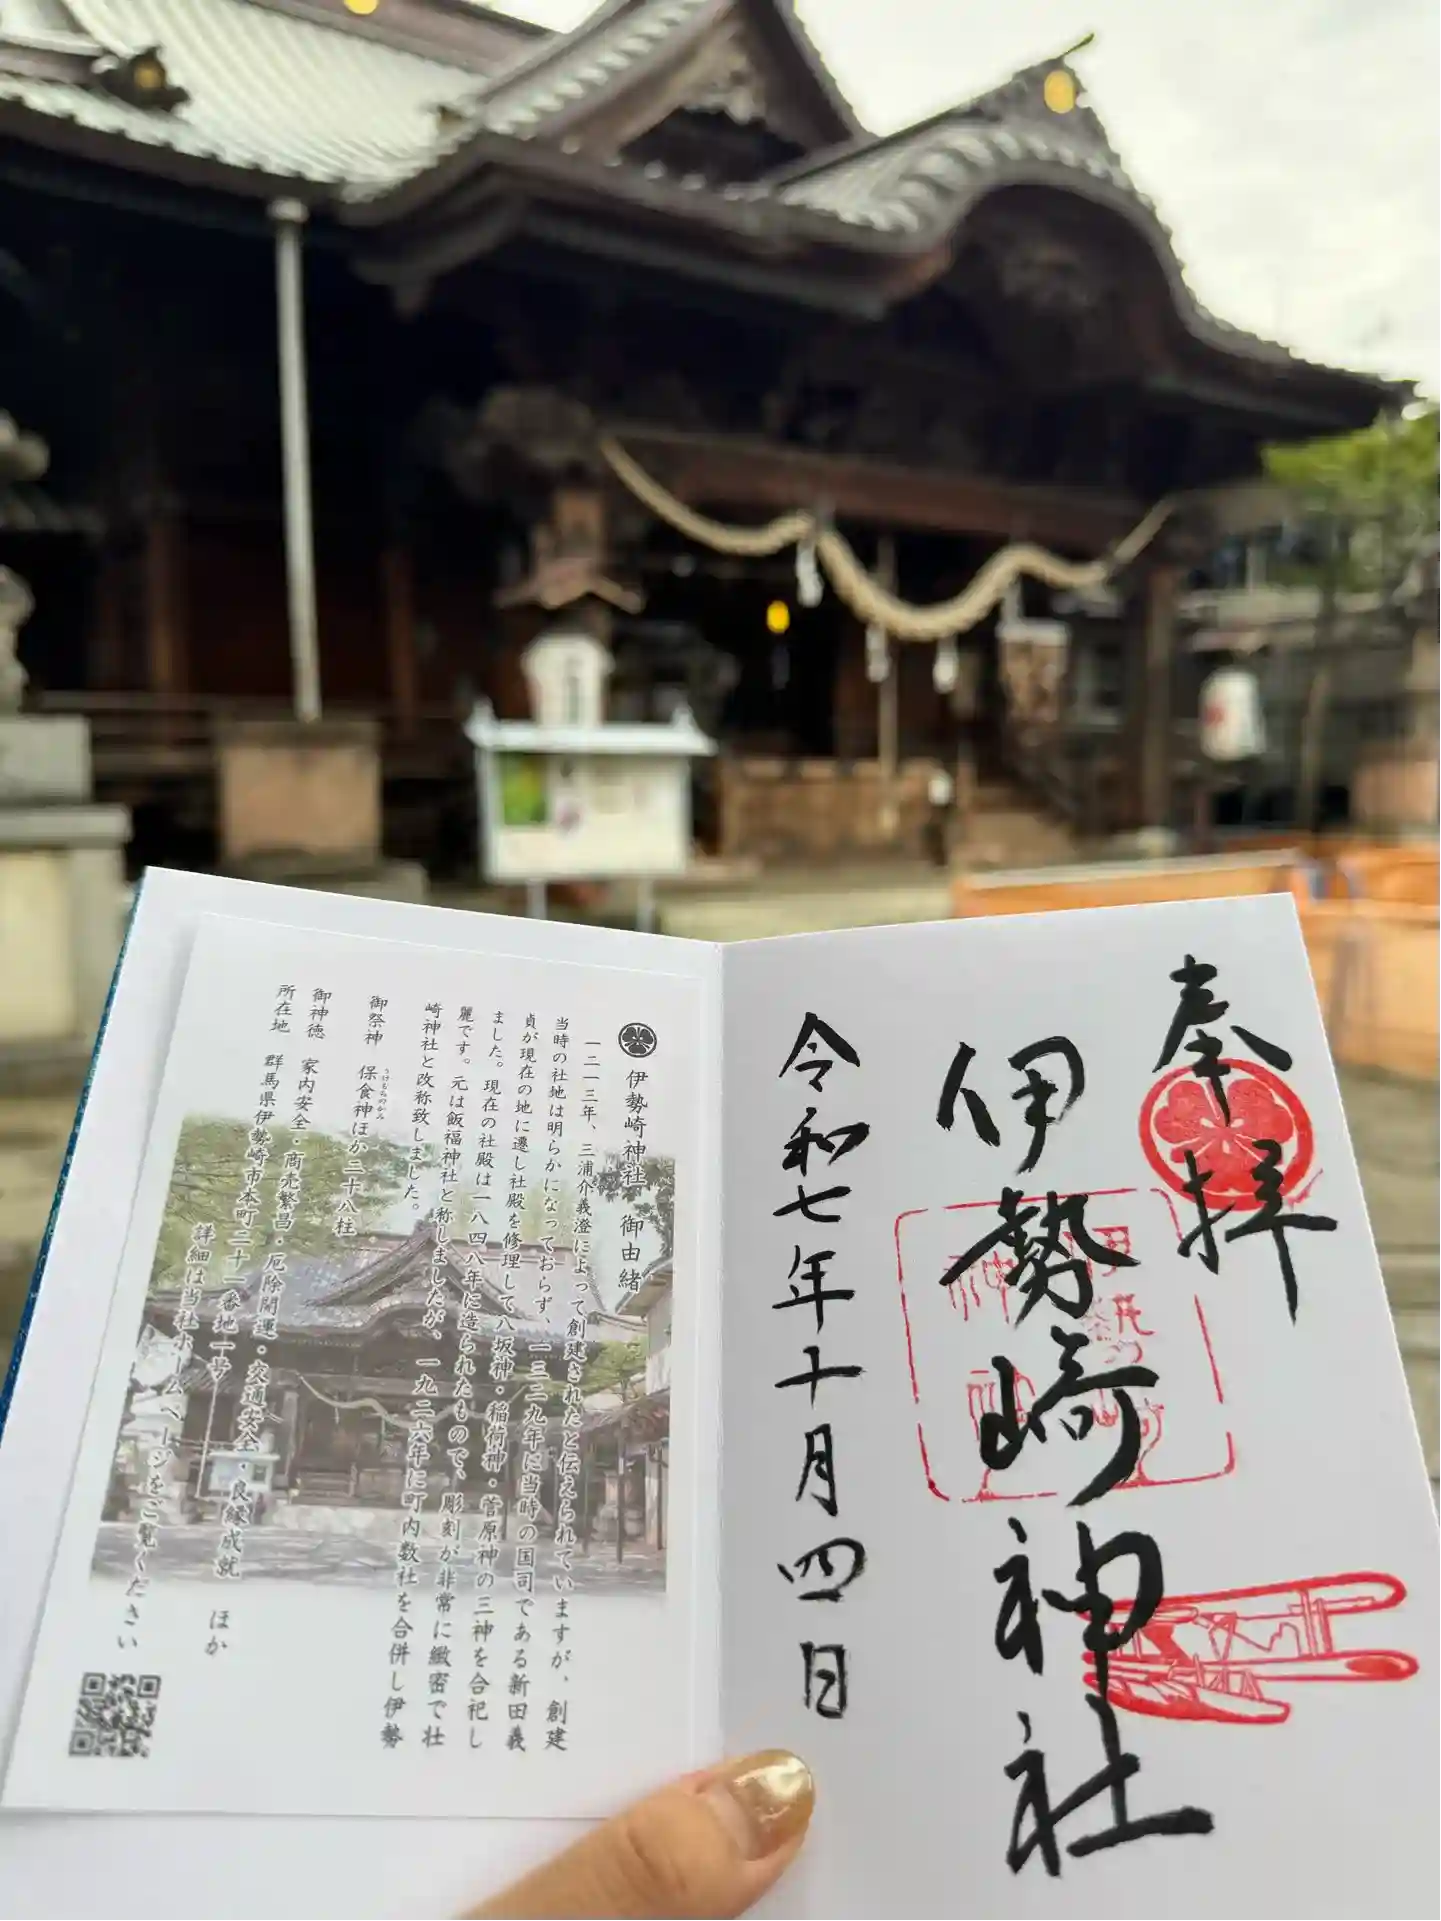 奉拝
伊勢崎神社
令和七年十月四日
伊勢崎神社 御由緒
一二一三年、三浦介義澄によって創建されたと伝えられていますが、創建
当時の社地は明らかになっておらず、一三二九年に当時の国司である新田義
貞が現在の地に遷し社殿を修理して八坂神・稲荷神・菅原神の三神を合祀し
ました。現在の社殿は一八四八年に造られたもので、彫刻が非常に緻密で壮
麗です。元は飯福神社と称しましたが、一九二六年に町内数社を合併し伊勢
崎神社と改称致しました。
御祭神 保食神ほか二十八柱
うけもちのかみ
御神徳 家内安全・商売繁昌・厄除開運・交通安全・良縁成就 ほか
所在地 群馬県伊勢崎市本町二十一番地一号
詳細は当社ホームページをご覧ください